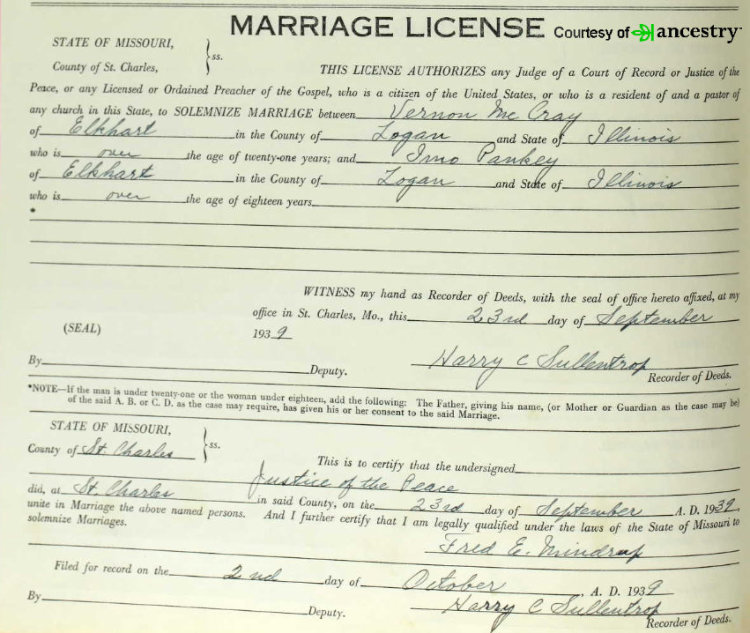 MARRIAGE LICENSE Courtesy of ancestry
STATE OF MISSOURI,
County of St. Charles, } ss.
THIS LICENSE AUTHORIZES any Judge of a Court of Record or Justice of the
Peace, or any Licensed or Ordained Preacher of the Gospel, who is a citizen of the United States, or who is a resident of and a pastor of
any church in this State, to SOLEMNIZE MARRIAGE between Vernon Mc Cray
of Elkhart in the County of Logan and State of Illinois
who is over the age of twenty-one years; and Imo Pankey
of Elkhart in the County of Logan and State of Illinois
who is over the age of eighteen years
*
WITNESS my hand as Recorder of Deeds, with the seal of office hereto affixed, at my
office in St. Charles, Mo., this 23rd day of September
(SEAL) 1939
By Deputy. Harry C Sullentrop
Recorder of Deeds.
*NOTE—If the man is under twenty-one or the woman under eighteen, add the following: The Father, giving his name, (or Mother or Guardian as the case may be)
of the said A. B. or C. D. as the case may require, has given his or her consent to the said Marriage.
STATE OF MISSOURI,
County of St. Charles } ss.
This is to certify that the undersigned
Justice of the Peace
did, at St. Charles in said County, on the 23rd day of September A. D. 1939,
unite in Marriage the above named persons. And I further certify that I am legally qualified under the laws of the State of Missouri to
solemnize Marriages.
Fred E. Mindrup
Filed for record on the 2nd day of October, A. D. 1939
By Deputy. Harry C Sullentrop
Recorder of Deeds.